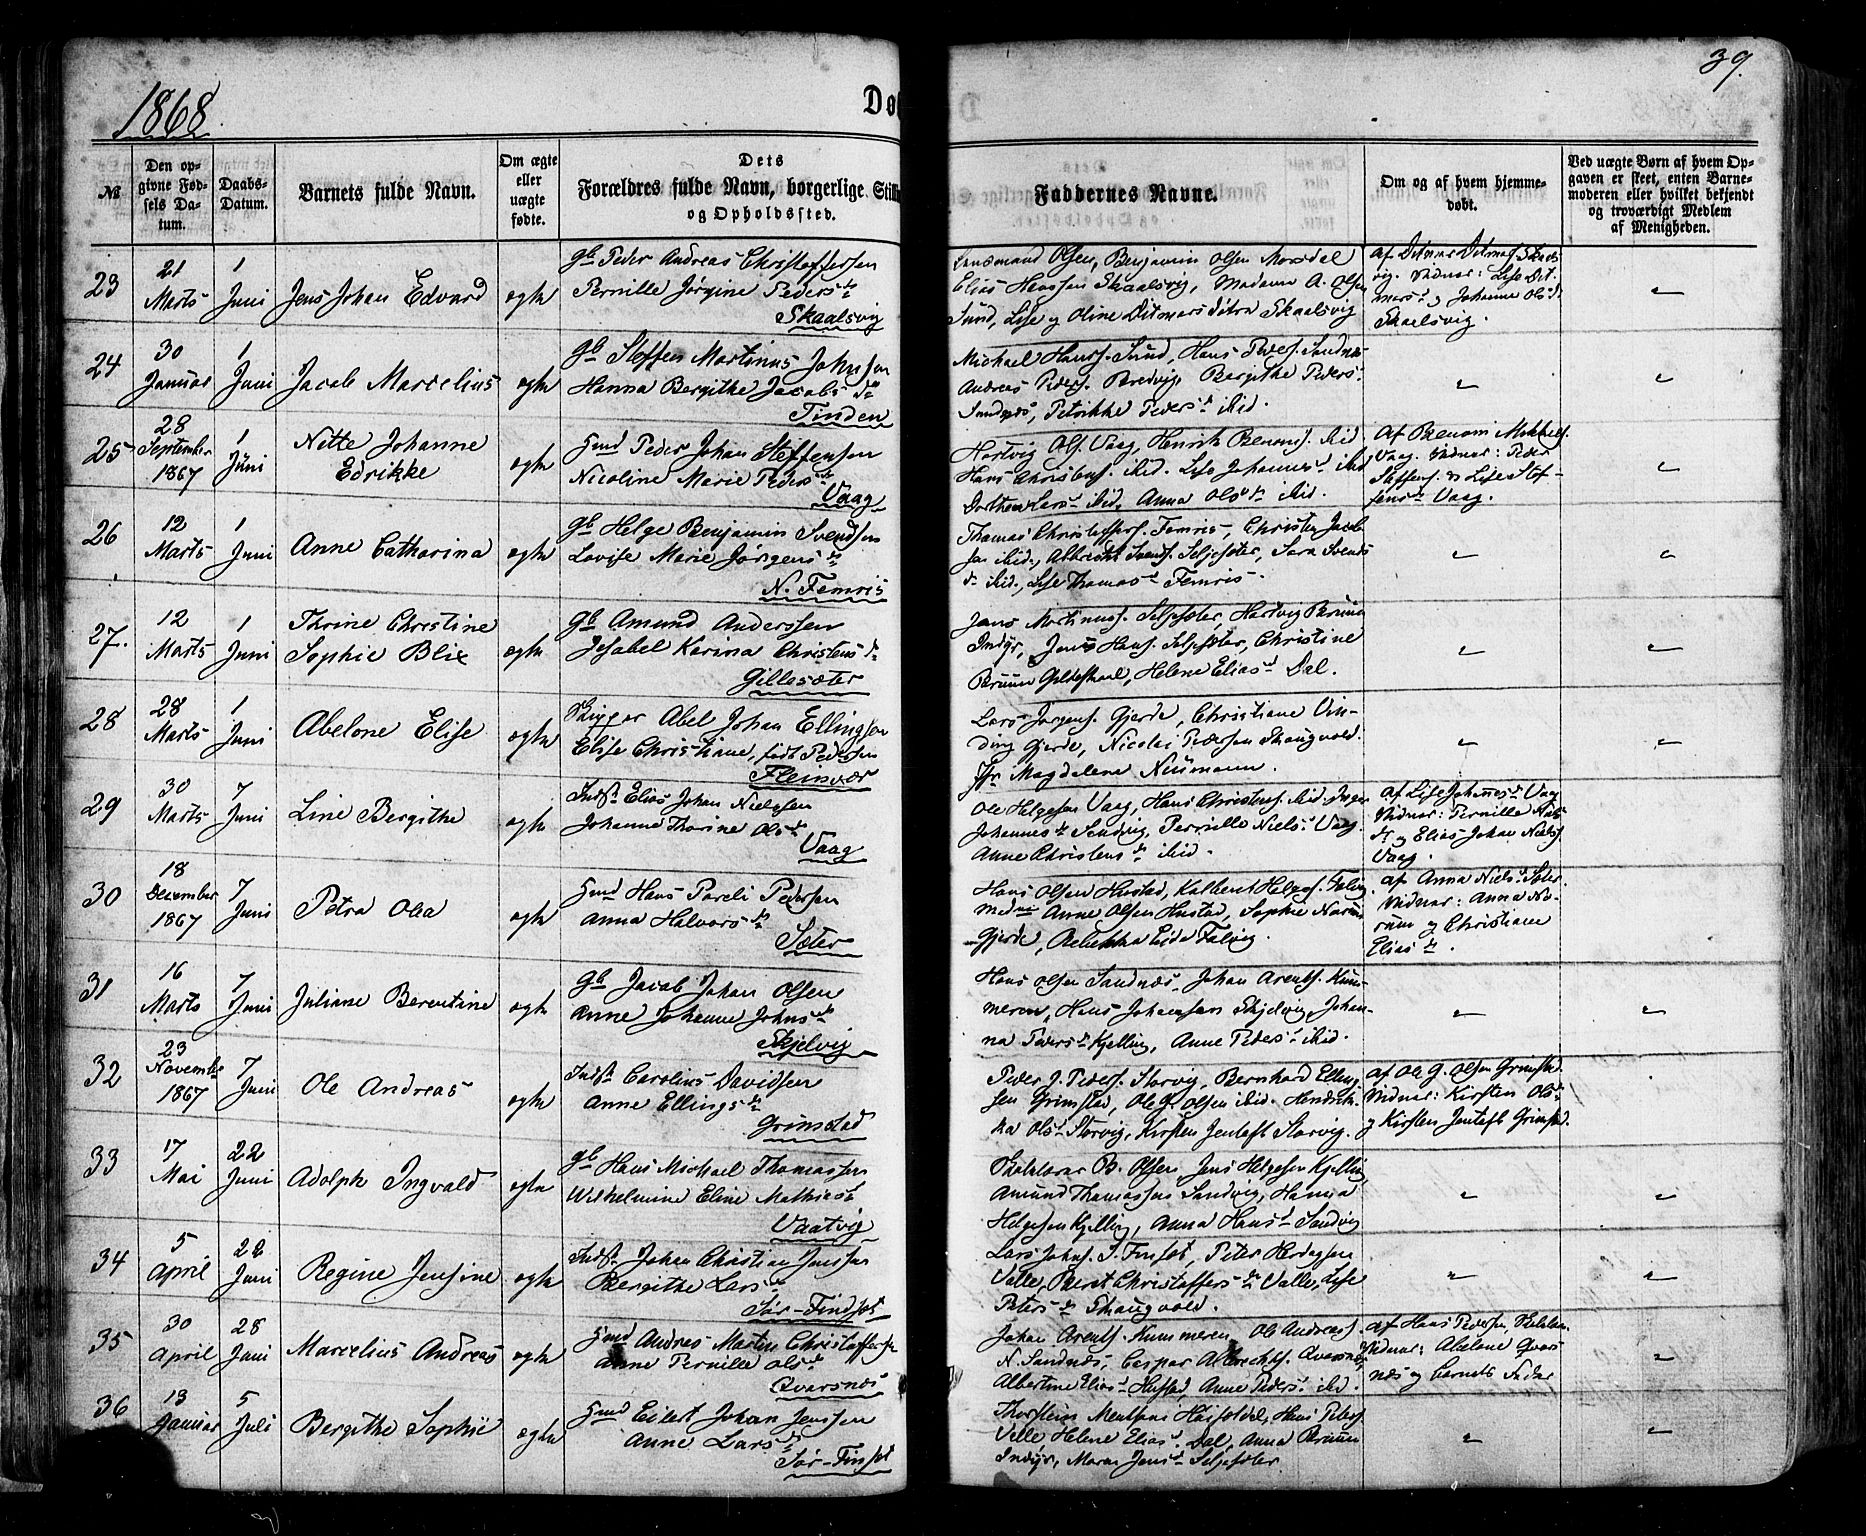 1868
Dø
39.
№
Den opgivne Fødsels Datum.
Daabs-Datum.
Barnets fulde Navn.
Om ægte eller uægte fødte.
Dets Forældres fulde Navn, borgerlige Still
og Opholdssted.
Faddernes Navne.
Om og af hvem hjemmedøbt.
Ved uægte Børn af hvem Opgaven er skeet, enten Barnemoderen eller hvilket bekjendt og troværdigt Medlem af Menigheden.
23
21 Marts
1 Juni
Jens Johan Edvard
ægte
Gb Peder Andreas Christoffersen
Pernille Jørgine Peders dr
Skaalsvig
Olsen, Benjamin Olsen Morsdal
Elias Hansen Skaalsvig, Madame A. Olsen
Sund, Lise og Oline Ditmars døtre Skaalsvig
af Ditmar Ditmars Skaals
vig. Vidner: Lise Dit
mars d og Johanne Ols d
Skaalsvig.
24
30 Januar
1 Juni
Jacob Marcelius
ægte
Gb Steffen Martinus Johnsen
Hanna Bergithe Jacobs dr
Tinden
Michael Hans. Sund, Hans Peders. Sandnæs
Andreas Peders. Bredvig, Bergithe Peders d
Sandnæs, Petrikke Peders d ibid.
25
28 September 1867
1 Juni
Nitte Johanne
Edrikke
ægte
Gmd Peder Johan Steffensen
Nicoline Marie Peders dr
Vaag
Hartvig Ols. Vaag, Henrik Benons. ibid
Hans Christens. ibid. Lise Johannes d ibid
Dorthea Lars d ibid, Anna Ols dr ibid.
af Benoni Mikkels.
Vaag. Vidner: Peder
Steffens. og Lise Stef-
fens dr Vaag.
26
12 Marts
1 Juni
Anne Catharina
ægte
Gb Helge Benjamin Svendsen
Lovise Marie Jørgens dr
N. Femris
Thomas Christoffers. Femris, Christen Jacob
sen ibid., Albrecht Svends. Seljesæter, Sara Svends
dr ibid., Lise Thomas d Femris.
27.
12 Marts
1 Juni
Thrine Christine
Sophie Blix
ægte
Gb Amund Anderssen
Jesabel Karina Christens dr
Gillesæter
Jens Martinus. Seljesæter, Hartvig Bruun
Indyr, Jens Hans. Seljesæter, Christine
Bruun Gildeskaal, Helene Elias d Dal.
28
28 Marts
1 Juni
Abelone Elise
ægte
Skipper Abel Johan Ellingsen
Elise Christiane, født Pedersen
Fleinvær
Lars Jørgens. Gjerde, Christiane Vin-
ding Gjerde, Nicolai Pedersen Skaugvold.
Jfr Magdalene Neumann.
29
30 Marts
7 Juni
Line Bergithe
ægte
Indst. Elias Johan Nielssen
Johanne Thorine Ols dr
Vaag
Ole Helgesen Vaag, Hans Christens. ibid, Inger
Johannes dr Sandvig, Pernille Niels d Vaag.
Anne Christens dr ibid.
af Lise Johannes d Vaag
Vidner: Pernille Niels
dr og Elias Johan Niels.
Vaag.
30
18 December 1867
7 Juni
Petra Olea
ægte
Gmd Hans Pareli Pedersen
Anna Halvors dr
Sæter
Hans Olsen Hustad, Kalberet Helges. Falvig
Anne Olsen Hustad, Sophie Norum
Gjerde, Rebekka Eide Falvig.
af Anna Niels d Sæter.
Vidner: Anna No-
rum og Christiane
Elias dr.
31
16 Marts
7 Juni
Juliane Berentine
ægte
Gb Jacob Johan Olsen
Anne Johanne Johns dr
Skjelvig
Hans Olsen Sandnæs, Johan Arents. Kun-
meren, Hans Johansen Skjelvig, Johan-
na Peders d Kjelling, Anne Peders d ibid.
32
23 November 1867
7 Juni
Ole Andreas
ægte
Indst. Carolius Davidsen
Anne Ellings dr
Grimstad
Peder J. Peders. Storvig, Bernhard Elling
sen Grimstad, Ole G. Olsen ibid. Hendrik-
ka Ols d Storvig, Kirsten Jentoft Storvig.
af Ole G. Olsen Grimstad
Vidner: Kirsten Ols d
og Kirsten Jentoft Grimstad.
33
17 Mai
22 Juni
Adolph Ingvald
ægte
Gb Hans Michael Thomassen
Wilhelmine Eline Mathias d
Vaatvig
B. Olsen, Jens Helgesen Kjelling
Amund Thomassen Sandvig, Hanna
Helgesen Kjelling, Anna Hans d Sandvig
34
5 April
22 Juni
Regine Jensine
ægte
Indst. Johan Christian Jenssen
Bergithe Lars dr
Sør-Findset
Lars Johns. S. Finset, Peter
Valle, Beret Christoffers dr Valle, Lise
Peters dr Skaugvold.
35
30 April
28 Juni
Marcelius Andreas
ægte
Gmd Andreas Marten Christoffersen
Anne Pernille Ols dr
Qvarsnæs
Johan Arents. Kunmeren, Ole Andreas.
N. Sandnæs, Caspar Albrechts. Qvarsnæs
Albertine Elias d Hustad, Anne Peders d ibid.
af Hans Pedersen,
Vidner: Abelone Qvars
næs og barnets Fader
36
13 Januar
5 Juli
Bergithe Sophie
ægte
Gmd Eilert Johan Jenssen
Anne Lars dr
Sør-Finset
Thorstein Hans Peters.
Valle, Helene Elias d Dal, Anna Bruun
Indyr, Maren Jens d Seljesæter